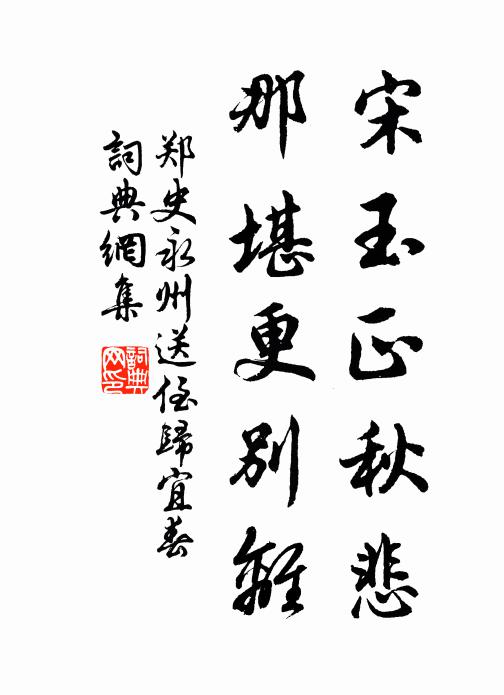 宋玉正秋悲
那堪更別離
郑史永州送侄歸宜春
詞典網集
詞典網印